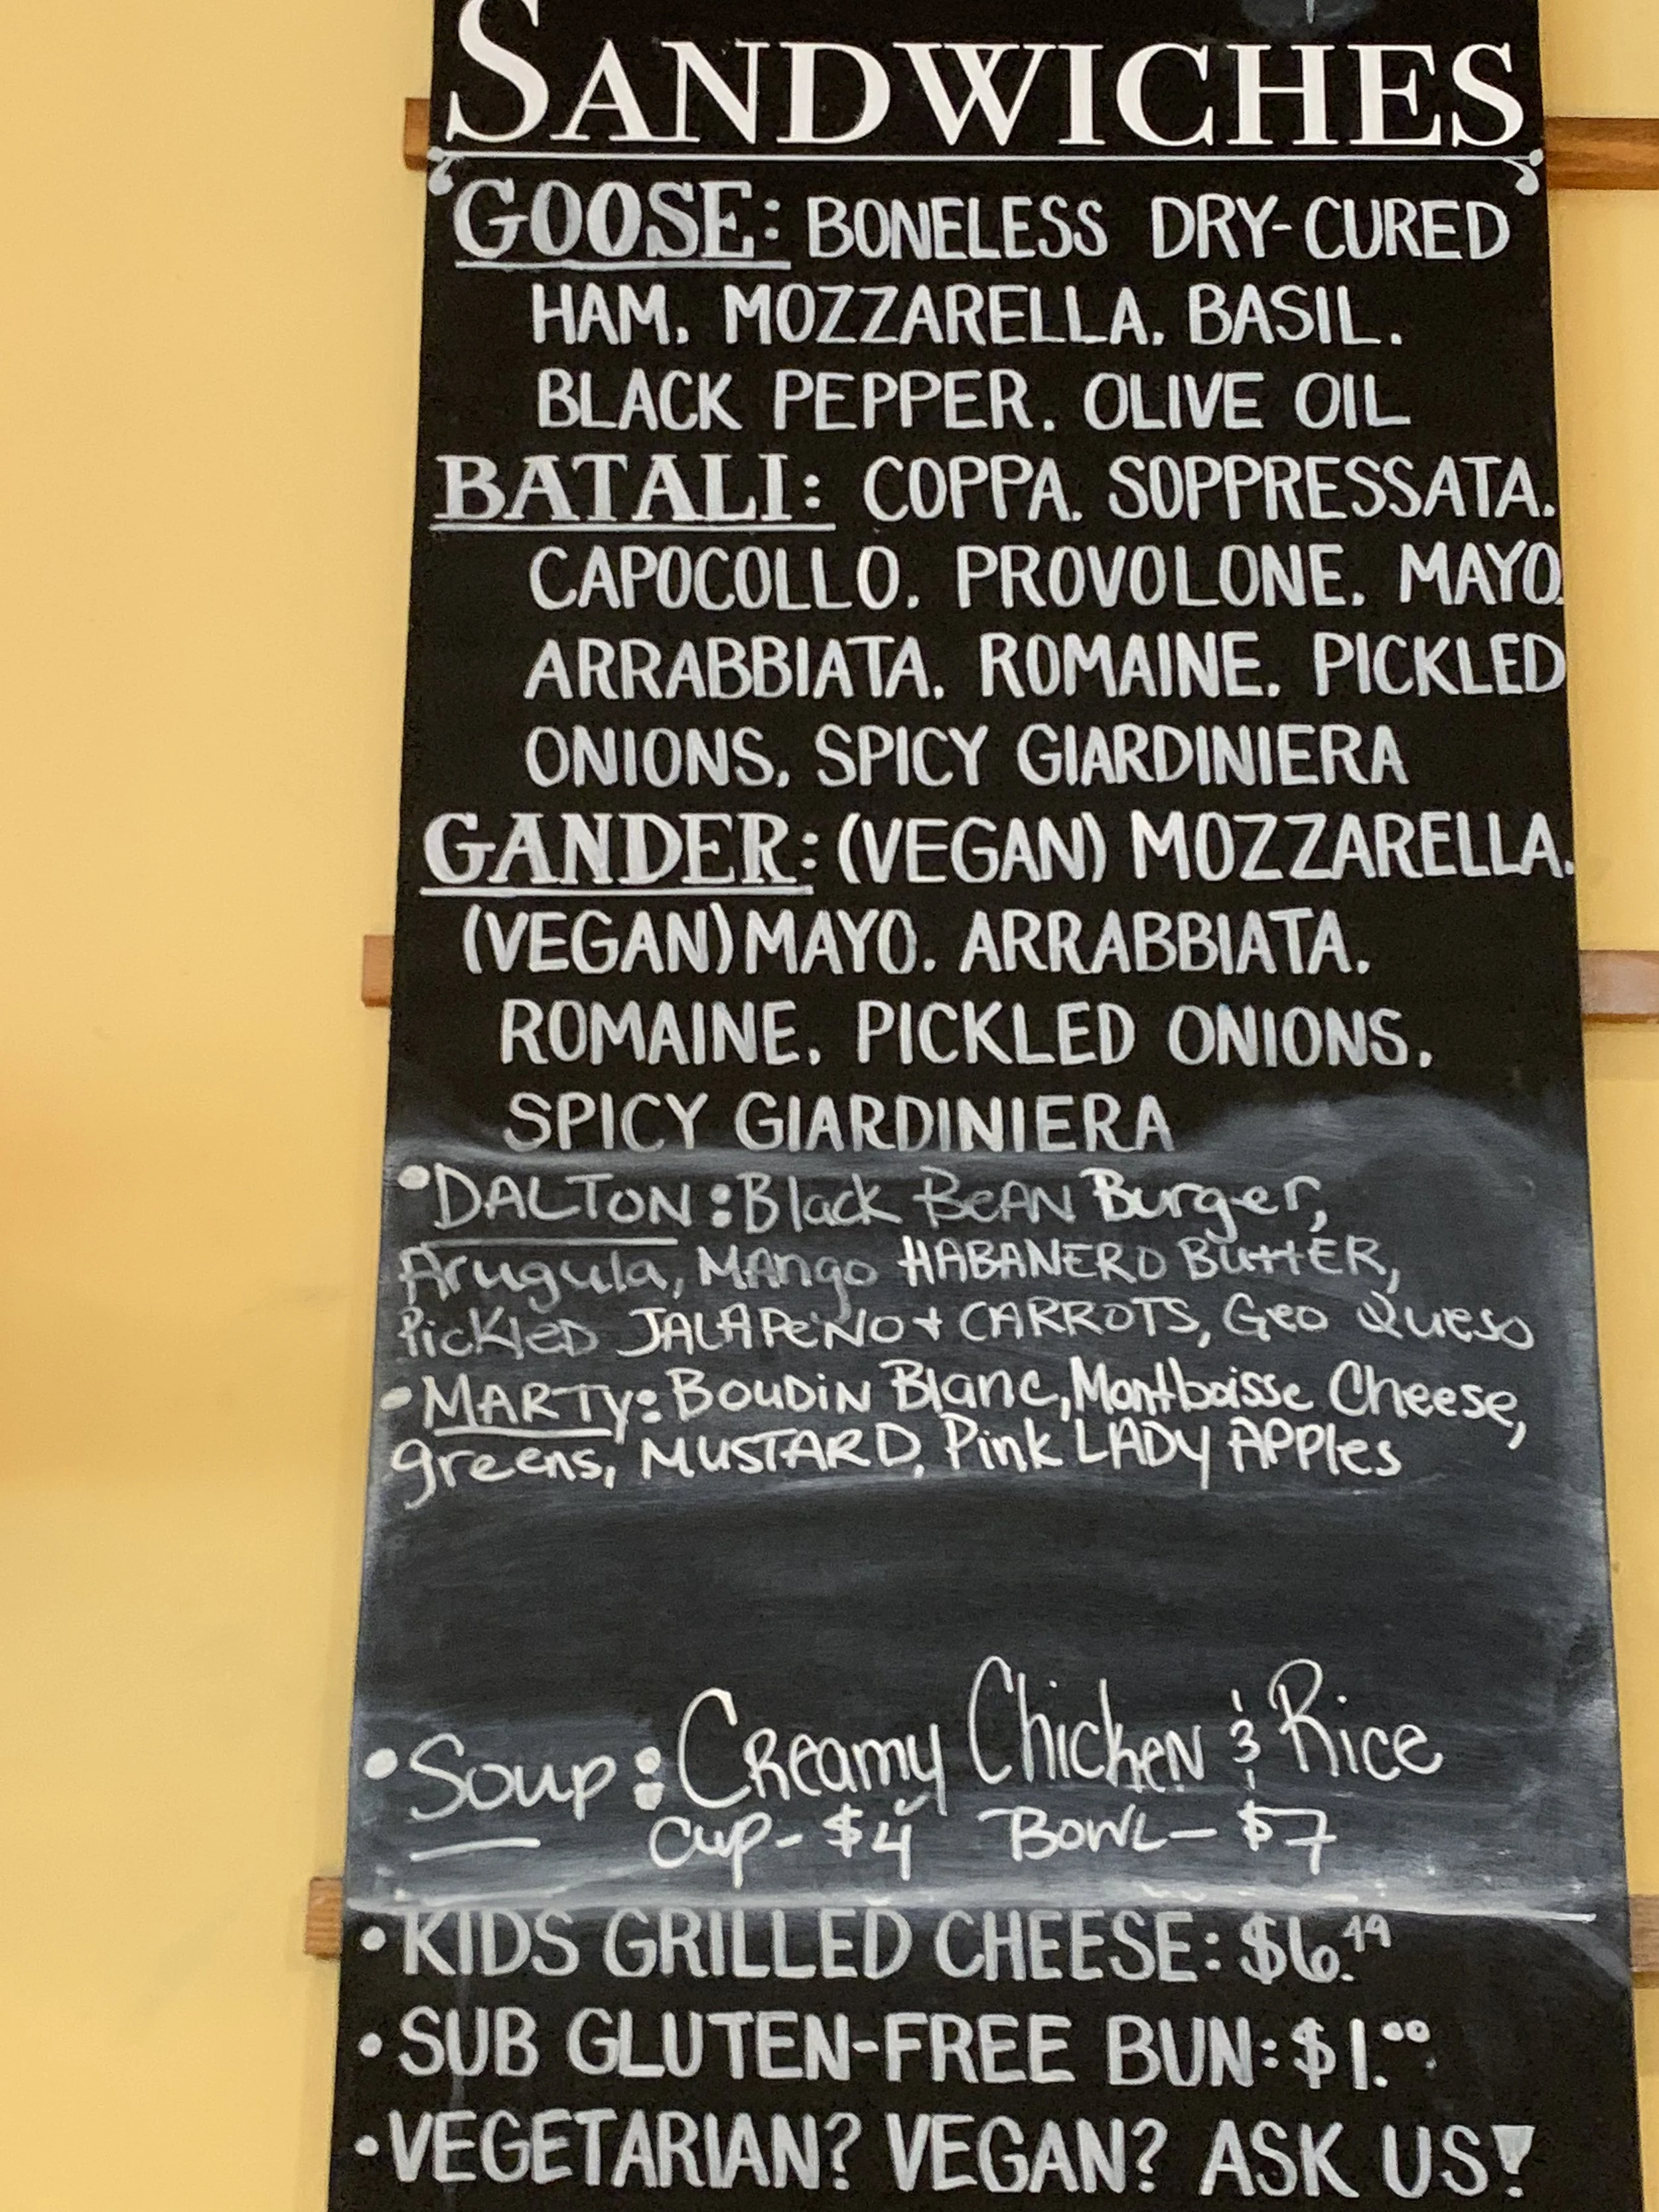 SANDWICHES
GOOSE: BONELESS DRY-CURED
HAM. MOZZARELLA. BASIL.
BLACK PEPPER. OLIVE OIL
BATALI: COPPA. SOPPRESSATA.
CAPOCOLLO. PROVOLONE. MAYO.
ARRABBIATA. ROMAINE. PICKLED
ONIONS. SPICY GIARDINIERA
GANDER: (VEGAN) MOZZARELLA.
(VEGAN) MAYO. ARRABBIATA.
ROMAINE. PICKLED ONIONS.
SPICY GIARDINIERA
•DALTON: Black BeAN Burger,
Arugula, MAngo HABANERO ButtER,
PickleD JALAPeÑO + CARROTS, Geo Queso
•MARTy: BouDiN Blanc, Montboisse Cheese,
greens, MUSTARD, Pink LADy APPles
•Soup: CReamy ChickeN & Rice
Cup- $4 BowL- $7
•KIDS GRILLED CHEESE: $6.49
•SUB GLUTEN-FREE BUN: $1.00
•VEGETARIAN? VEGAN? ASK US!